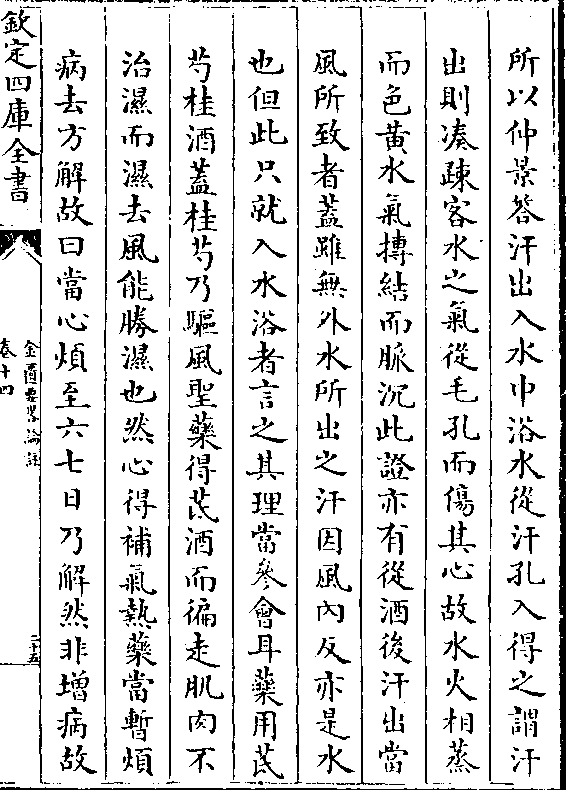 所以仲景答汗出入水中浴水從汗孔入得之謂汗
出則凑疎客水之氣從毛孔而傷其心故水火相蒸
而色黃水氣摶結而脈沉此證亦有從酒後汗出當
風所致者蓋雖無外水所出之汗因風內反亦是水
也但此只就入水浴者言之其理當參會耳藥用芪
芍桂酒蓋桂芍乃驅風聖藥得芪酒而徧走肌肉不
治濕而濕去風能勝濕也然心得補氣熱藥當暫煩
病去方解故曰當心煩至六七日乃解然非增病故
欽定四庫全書
金匱要畧論註
卷十四
二十五